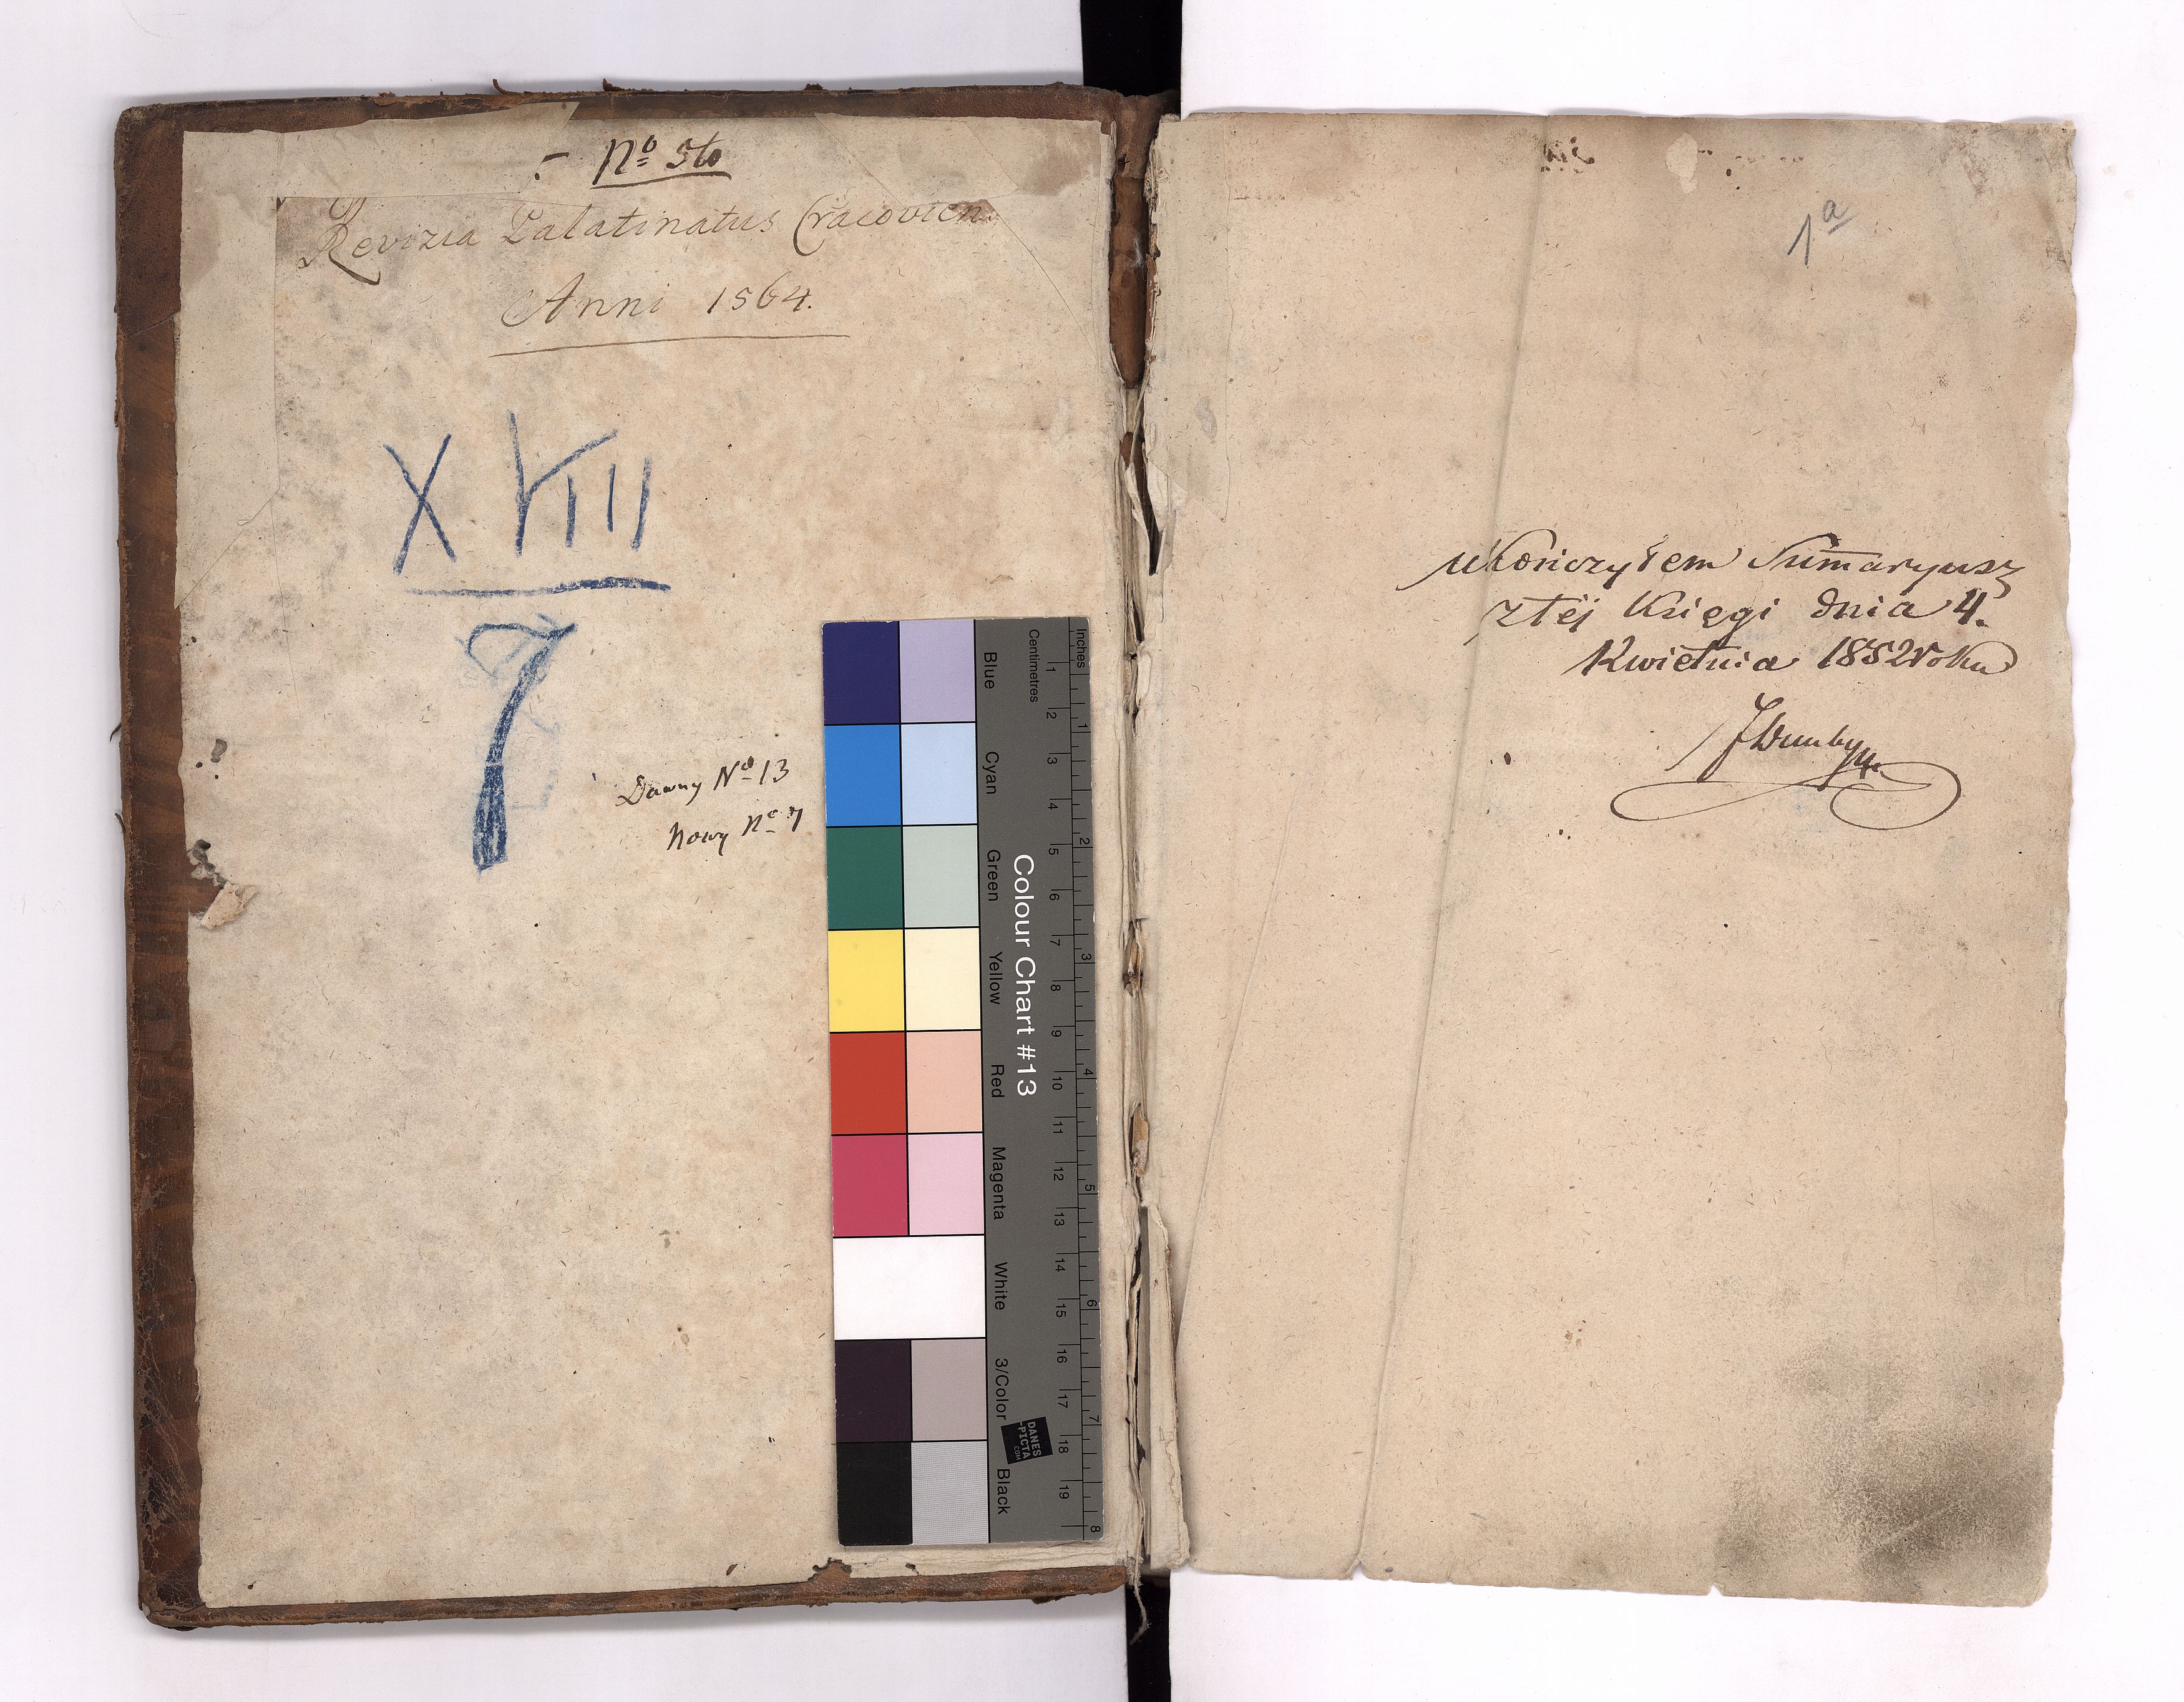 Nº 56
Revizia Palatinatus Cracovien.
Anni 1564.
XVIII
7
Dawny Nº 13
Nowy Nº 7
Inches
Centimetres
1 2 3 4 5 6 7 8
1 2 3 4 5 6 7 8 9 10 11 12 13 14 15 16 17 18 19
Colour Chart #13
Blue
Cyan
Green
Yellow
Red
Magenta
White
3/Color
Black
DANES
-PICTA
.COM
1a
Ukończyłem Sum̄aryusz
z téj Księgi dnia 4.
Kwietnia 1852 roku